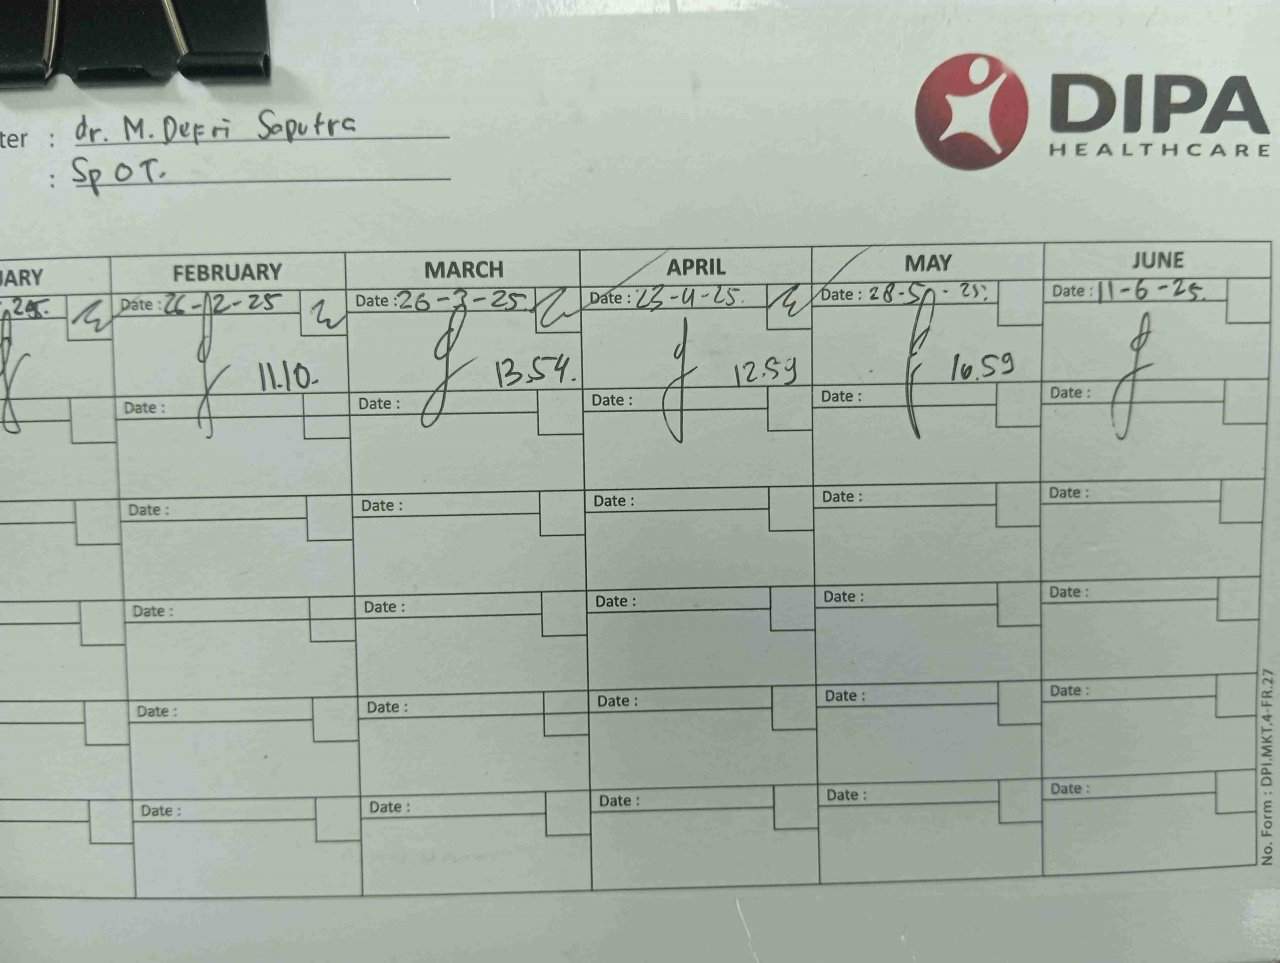 DIPA
HEALTHCARE
ter : dr. M. Defri Saputra
: Sp OT.
UARY FEBRUARY MARCH APRIL MAY JUNE
25. Date : 26-2-25 Date : 26-3-25 Date : 23-4-25. Date : 28-5-25. Date : 11-6-25.
11.10. 13.54. 12.59 16.59
Date : Date : Date : Date : Date :
Date : Date : Date : Date : Date :
Date : Date : Date : Date : Date :
Date : Date : Date : Date : Date :
Date : Date : Date : Date : Date :
No. Form : DPI.MKT.4-FR.27